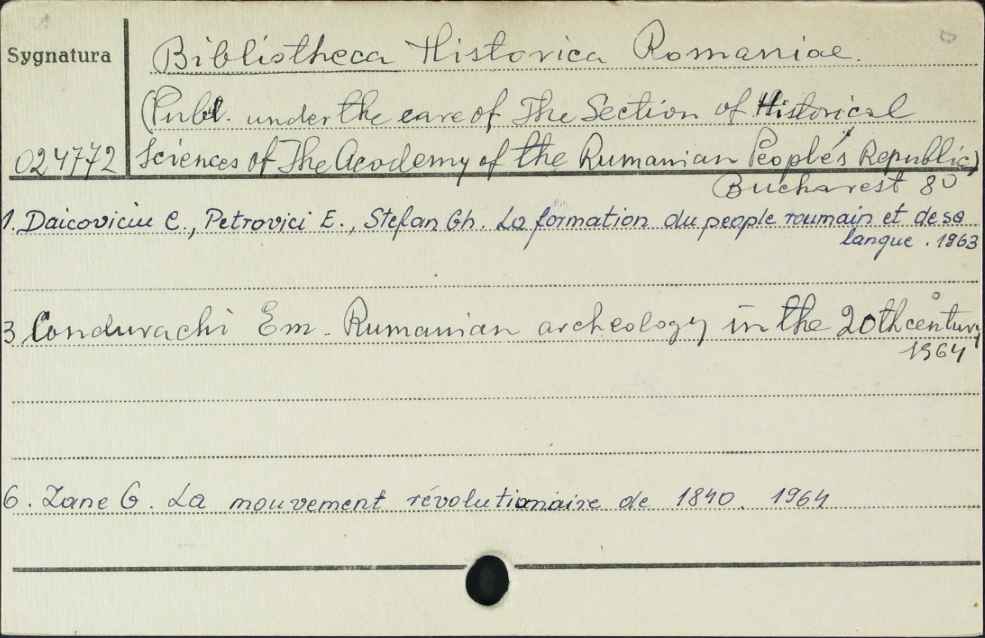 Sygnatura
Bibliotheca Historica Romaniae.
(Publ. under the care of The Section of Historical
024772 Sciences of The Academy of the Rumanian People's Republic)
Bucharest 8°
1. Daicoviciu C., Petrovici E., Stefan Gh. La formation du people roumain et de sa
langue. 1963
3 Condurachi Em. Rumanian archeology in the 20th century
1964
6. Zane G. La mouvement révolutionaire de 1840. 1964